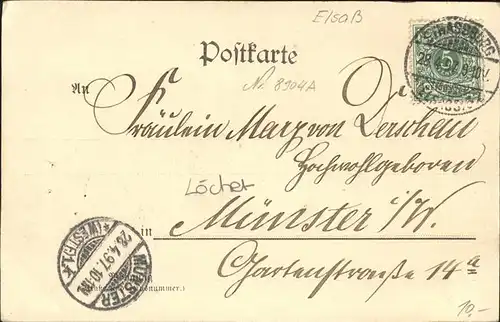 Elsaß
Postkarte
Nr. 8904A
An
Fräulein Marg von Derschau
Hochwohlgeboren
Löcher
in Münster i/W.
Gartenstraße 14a
STRASSBURG
28
9-10V.
MÜNSTER
28.4.97.
(WESTF.)
10.-